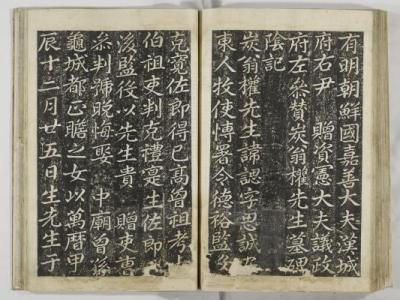 有明朝鮮國嘉善大夫漢城
府右尹　贈資憲大夫議政
府左叅贊炭翁權先生墓碑
陰記
炭翁權先生諱諰字思誠
東人牧使愽署令德裕監
克寬佐郎得已高曾祖考
伯祖吏判克禮寔生佐郎
後監役以先生貴　贈吏曹
叅判號晩悔娶　中廟曾孫
龜城都正瞻之女以萬曆甲
辰十二月廿五日生先生于